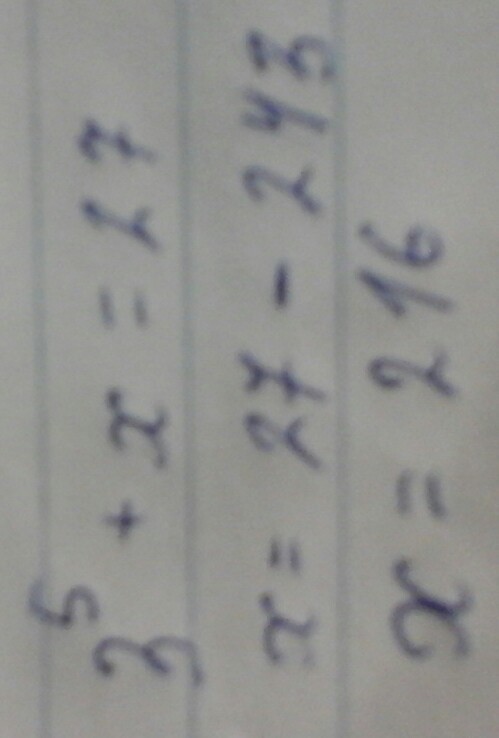 3⁵ + x = 27
x = 27 - 243
x = 216